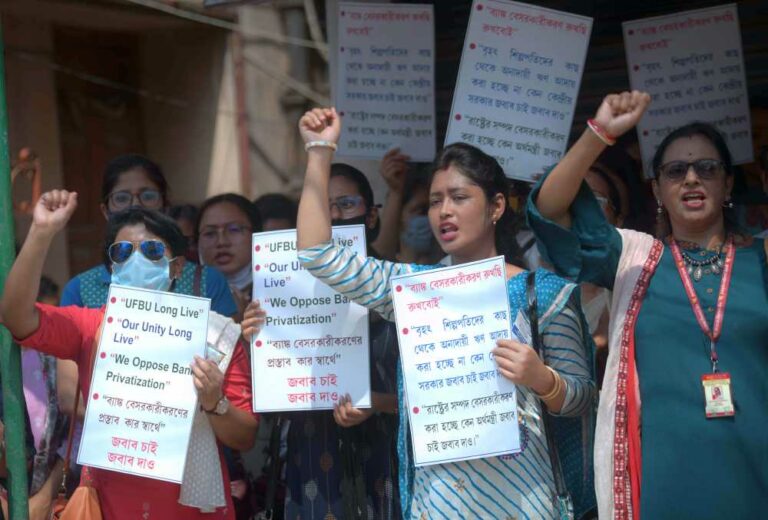 "ব্যাঙ্ক বেসরকারীকরণ
রুখবোই"
"বৃহৎ শিল্পপতিদের কাছ
থেকে অনাদায়ী ঋণ আদায়
করা হচ্ছে না কেন কেন্দ্রীয়
সরকার জবাব চাই জবাব দাও"
"রাষ্ট্রের সম্পদ বেসরকারীকরণ
করা হচ্ছে অর্থমন্ত্রী জবাব
"ব্যাঙ্ক বেসরকারীকরণ রুখছি
রুখবোই"
"বৃহৎ শিল্পপতিদের কাছ
থেকে অনাদায়ী ঋণ আদায়
করা হচ্ছে না কেন কেন্দ্রীয়
সরকার জবাব চাই জবাব দাও"
"রাষ্ট্রের সম্পদ বেসরকারীকরণ
করা হচ্ছে কেন অর্থমন্ত্রী জবাব
চাই জবাব দাও।"
রুখবোই"
"UFBU Long Live"
"Our Unity Long
Live"
"We Oppose Bank
Privatization"
"ব্যাঙ্ক বেসরকারীকরণের
প্রস্তাব কার স্বার্থে"
জবাব চাই
জবাব দাও
UFBU Long
"Our Unity Long
Live"
"We Oppose Bank
Privatization"
"ব্যাঙ্ক বেসরকারীকরণের
প্রস্তাব কার স্বার্থে"
জবাব চাই
জবাব দাও
"ব্যাঙ্ক বেসরকারীকরণ রুখছি
রুখবোই"
"বৃহৎ শিল্পপতিদের কাছ
থেকে অনাদায়ী ঋণ আদায়
করা হচ্ছে না কেন কেন্দ্রীয়
সরকার জবাব চাই জবাব দাও"
"রাষ্ট্রের সম্পদ বেসরকারীকরণ
করা হচ্ছে কেন অর্থমন্ত্রী জবাব
চাই জবাব দাও।"